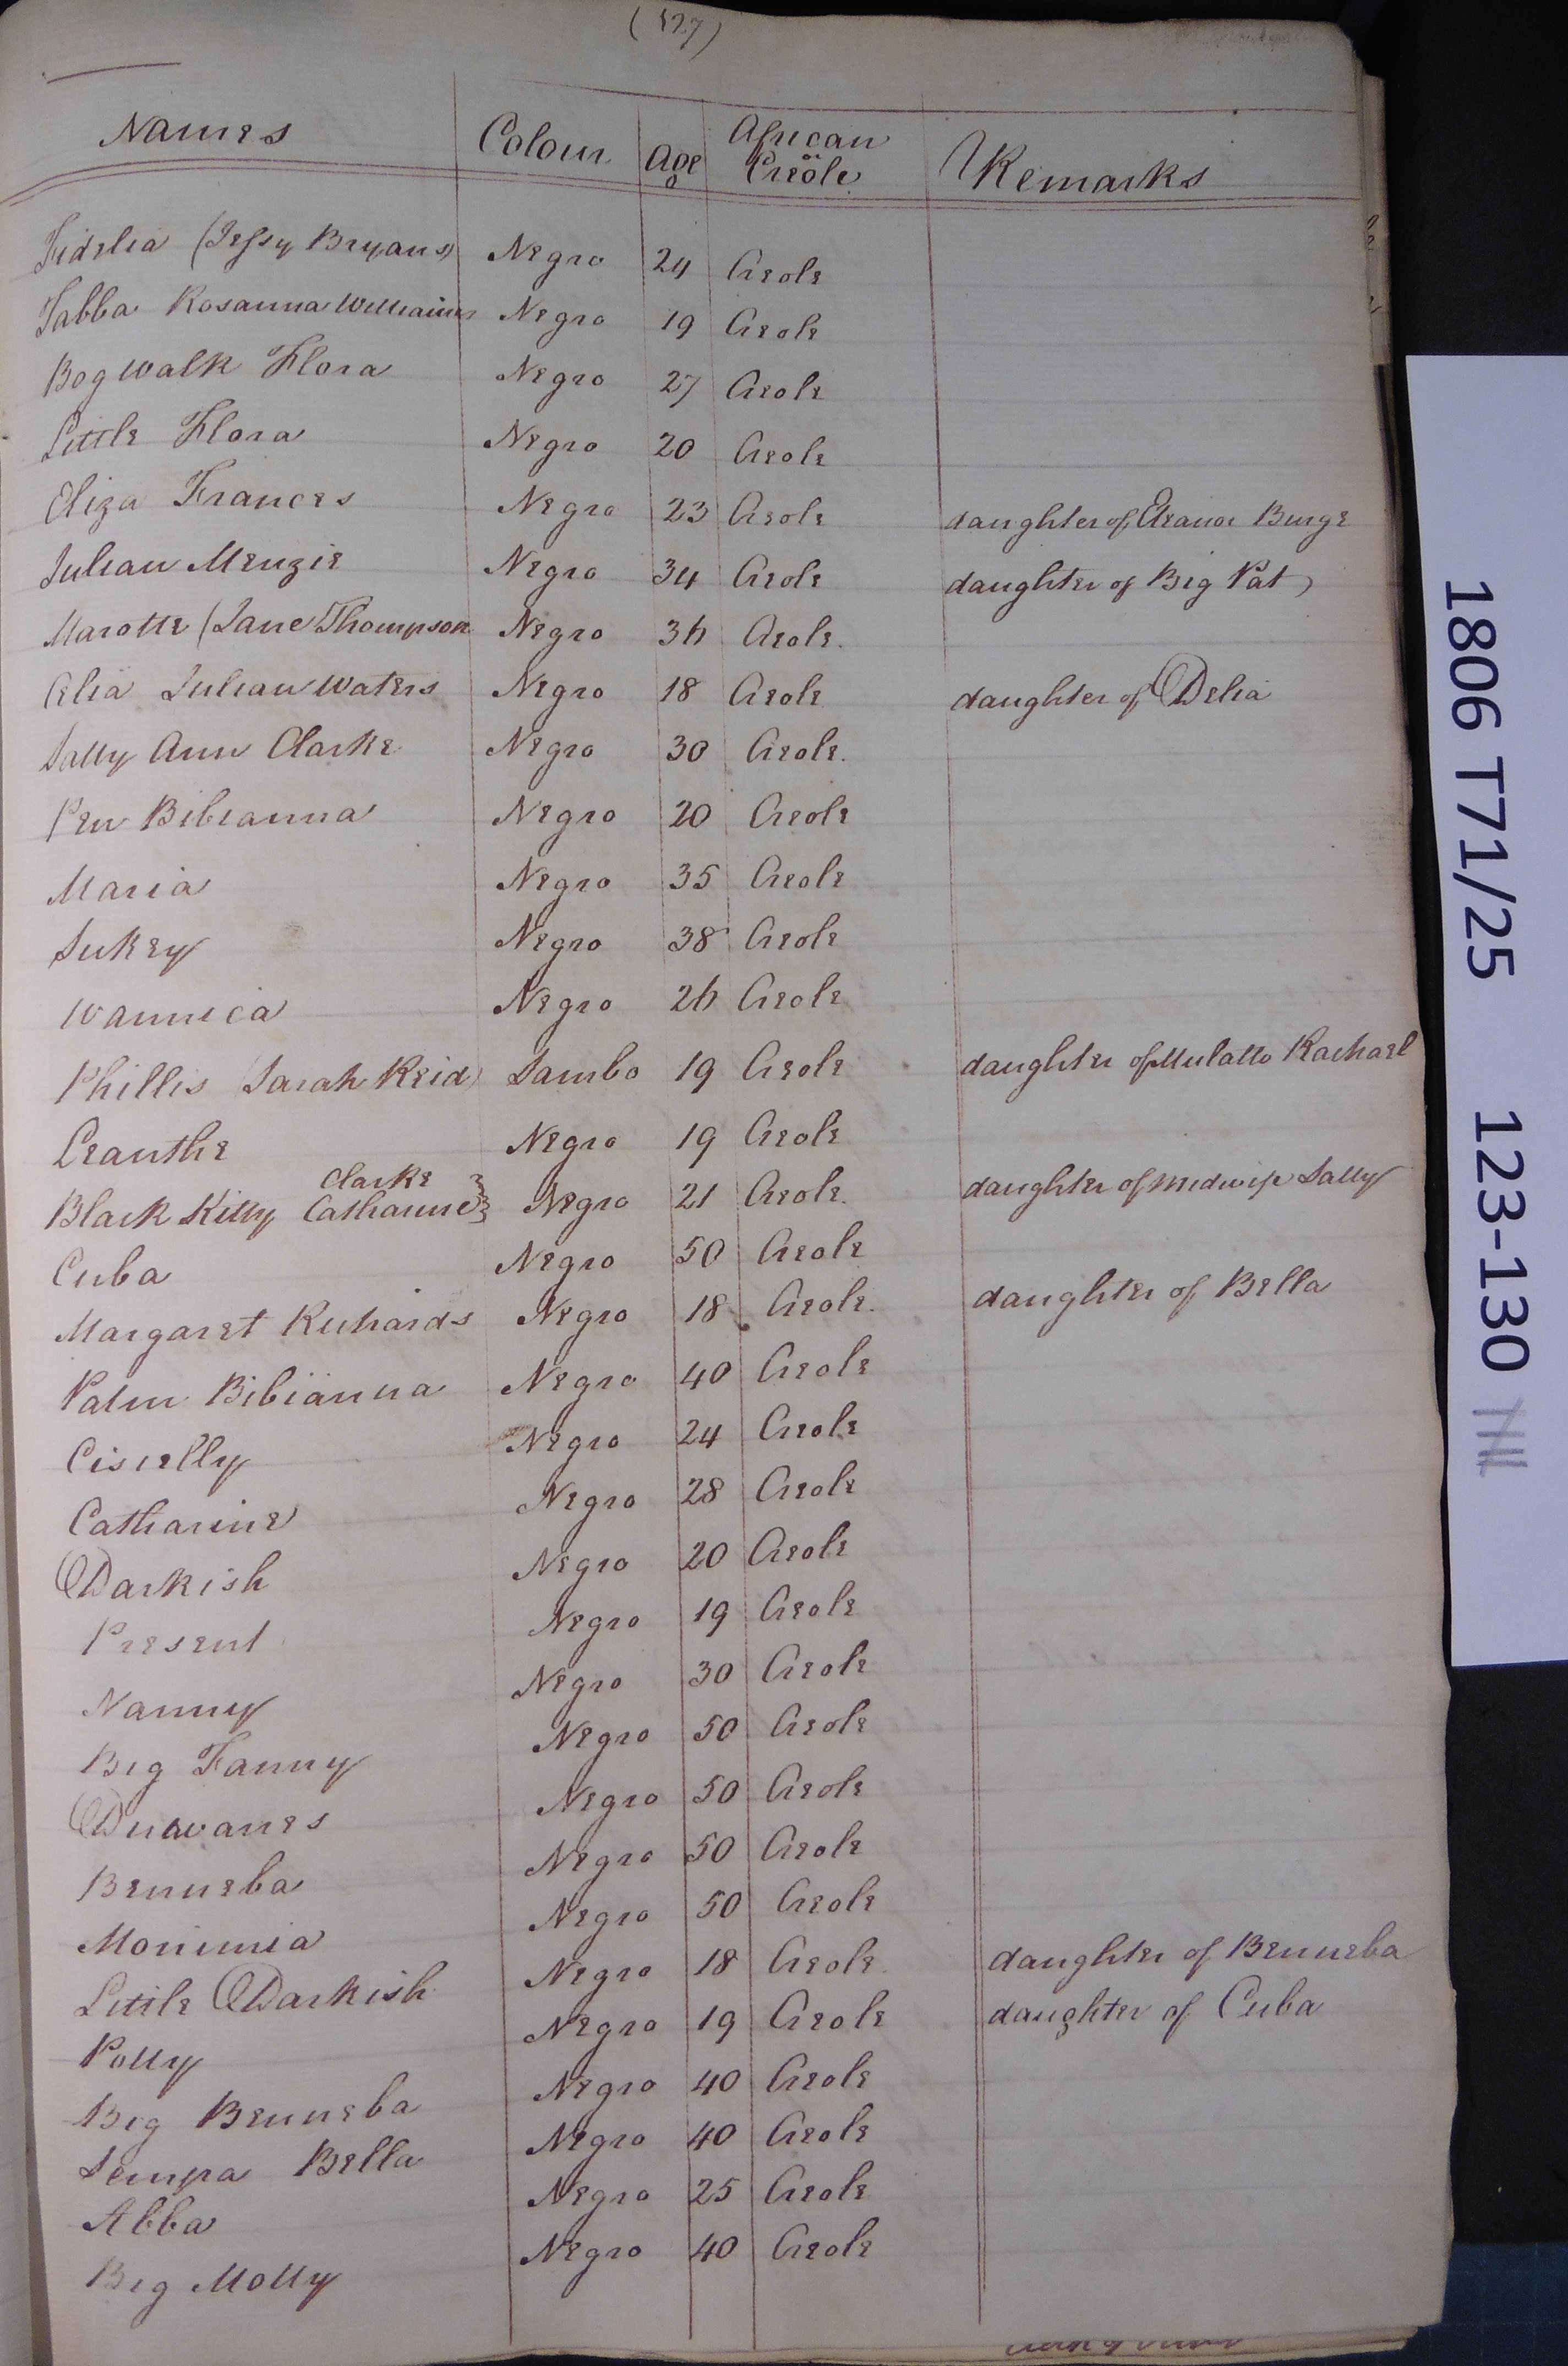 (127)
Names Colour Age African or Creole Remarks
Fidelia (Jessy Bryans) Negro 24 Creole
Jabba Rosanna Williams Negro 19 Creole
Bogwalk Flora Negro 27 Creole
Little Flora Negro 20 Creole
Eliza Frances Negro 23 Creole daughter of Eleanor Burge
Julian Menzie Negro 34 Creole daughter of Big Pat
Marotte (Jane Thompson Negro 36 Creole.
Celia Julian Waters Negro 18 Creole daughter of Delia
Sally Ann Clarke Negro 30 Creole.
Pen Bibianna Negro 20 Creole
Maria Negro 35 Creole
Sukey Negro 38 Creole
Wannica Negro 26 Creole
Phillis (Sarah Reid) Sambo 19 Creole daughter of Mulatto Rachael
Leanthe Negro 19 Creole
Clarke
Black Kitty Catharine Negro 21 Creole. daughter of Midwife Sally
Cuba Negro 50 Creole
Margaret Richards Negro 18 Creole. daughter of Bella
Palm Bibianna Negro 40 Creole
Ciscelly Negro 24 Creole
Catharine Negro 28 Creole
Darkish Negro 20 Creole
Present Negro 19 Creole
Nanny Negro 30 Creole
Big Fanny Negro 50 Creole
Duwanes Negro 50 Creole
Benneba Negro 50 Creole
Monimia Negro 50 Creole
Little Darkish Negro 18 Creole daughter of Benneba
Polly Negro 19 Creole daughter of Cuba
Big Benneba Negro 40 Creole
Sempa Bella Negro 40 Creole
Abba Negro 25 Creole
Big Molly Negro 40 Creole
1806 T71/25 123-130